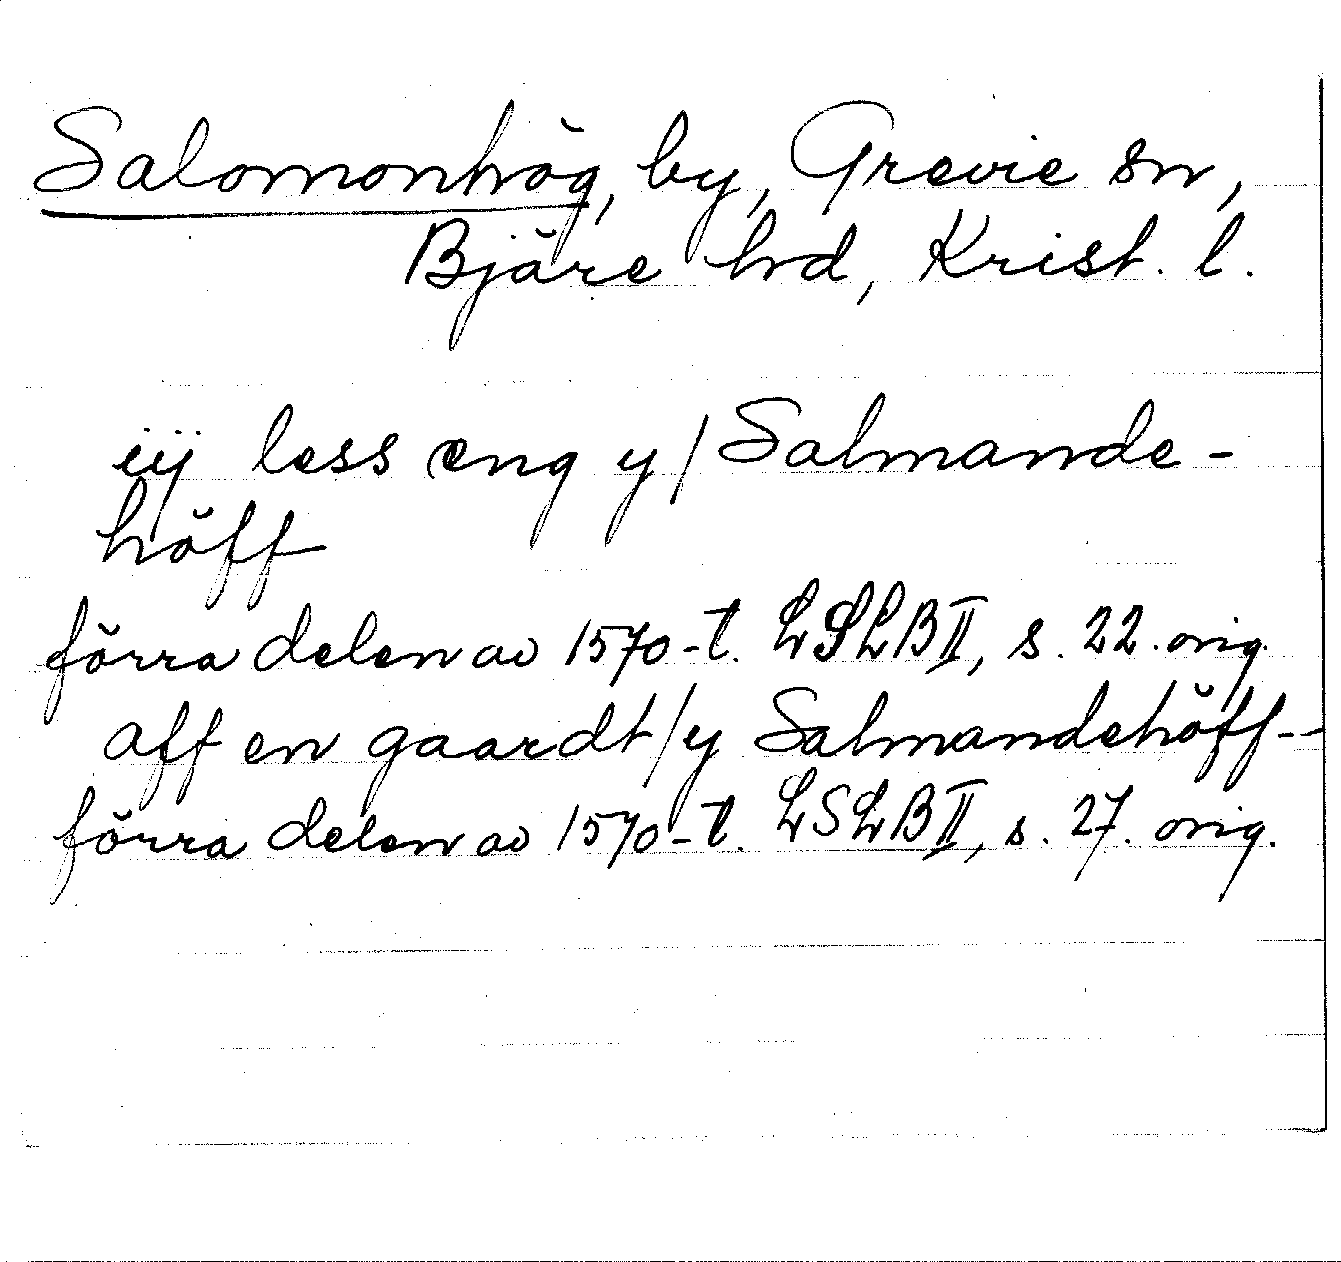 Salomonhög, by, Grevie sn,
Bjäre hd, Krist. l.
iij less eng y / Salmande-
höff
förra delen av 1570-t. LSLB II, s. 22. orig.
aff en gaardt / y Salmandehöff--
förra delen av 1570-t. LSLB II, s. 27. orig.